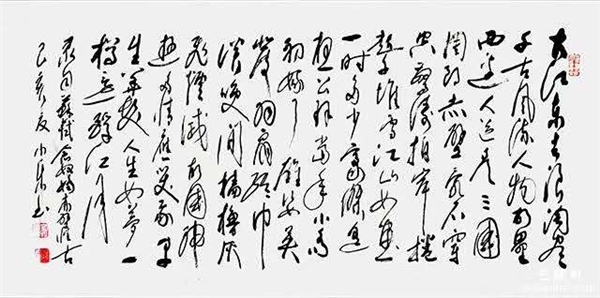 大江东去浪淘尽
千古风流人物故垒
西边人道是三国
周郎赤壁乱石穿
空惊涛拍岸卷
起千堆雪江山如画
一时多少豪杰遥
想公瑾当年小乔
初嫁了雄姿英
发羽扇纶巾
谈笑间樯橹灰
飞烟灭故国神
游多情应笑我早
生华发人生如梦一
樽还酹江月
录自苏轼念奴娇赤壁怀古
己亥夏小东书